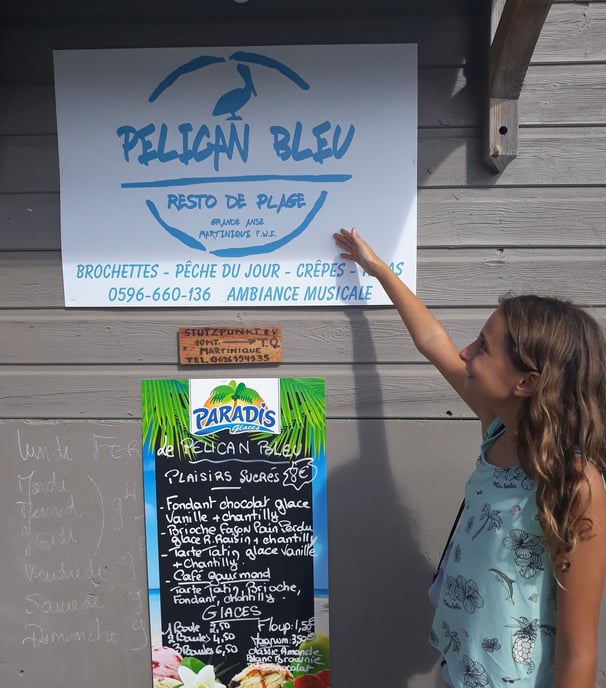 PELICAN BLEU
RESTO DE PLAGE
GRANDE ANSE
MARTINIQUE F.W.I.
BROCHETTES - PÊCHE DU JOUR - CRÊPES -
0596-660-136 AMBIANCE MUSICALE
STUTZPUNKT E.V
10MT. T.O.
MARTINIQUE
TEL. 0696194935
PARADIS
Glaces
de PELICAN BLEU
PLAISIRS SUCRÉS 8€
- Fondant chocolat glace
Vanille + chantilly
- Brioche façon Pain Perdu
glace R. Raisin + chantilly
- Tarte Tatin glace vanille
+ Chantilly.
- Café gourmand
Tarte Tatin, Brioche,
Fondant, chantilly.
GLACES
1 Boule 2,50
2 Boules 4,50
3 Boules 6,50
Floup: 1,50€
3,50€
classic Amande
Blanc Brownie
chocolat
lundi FER
Mardi
jeudi
Vendredi
Samedi
Dimanche